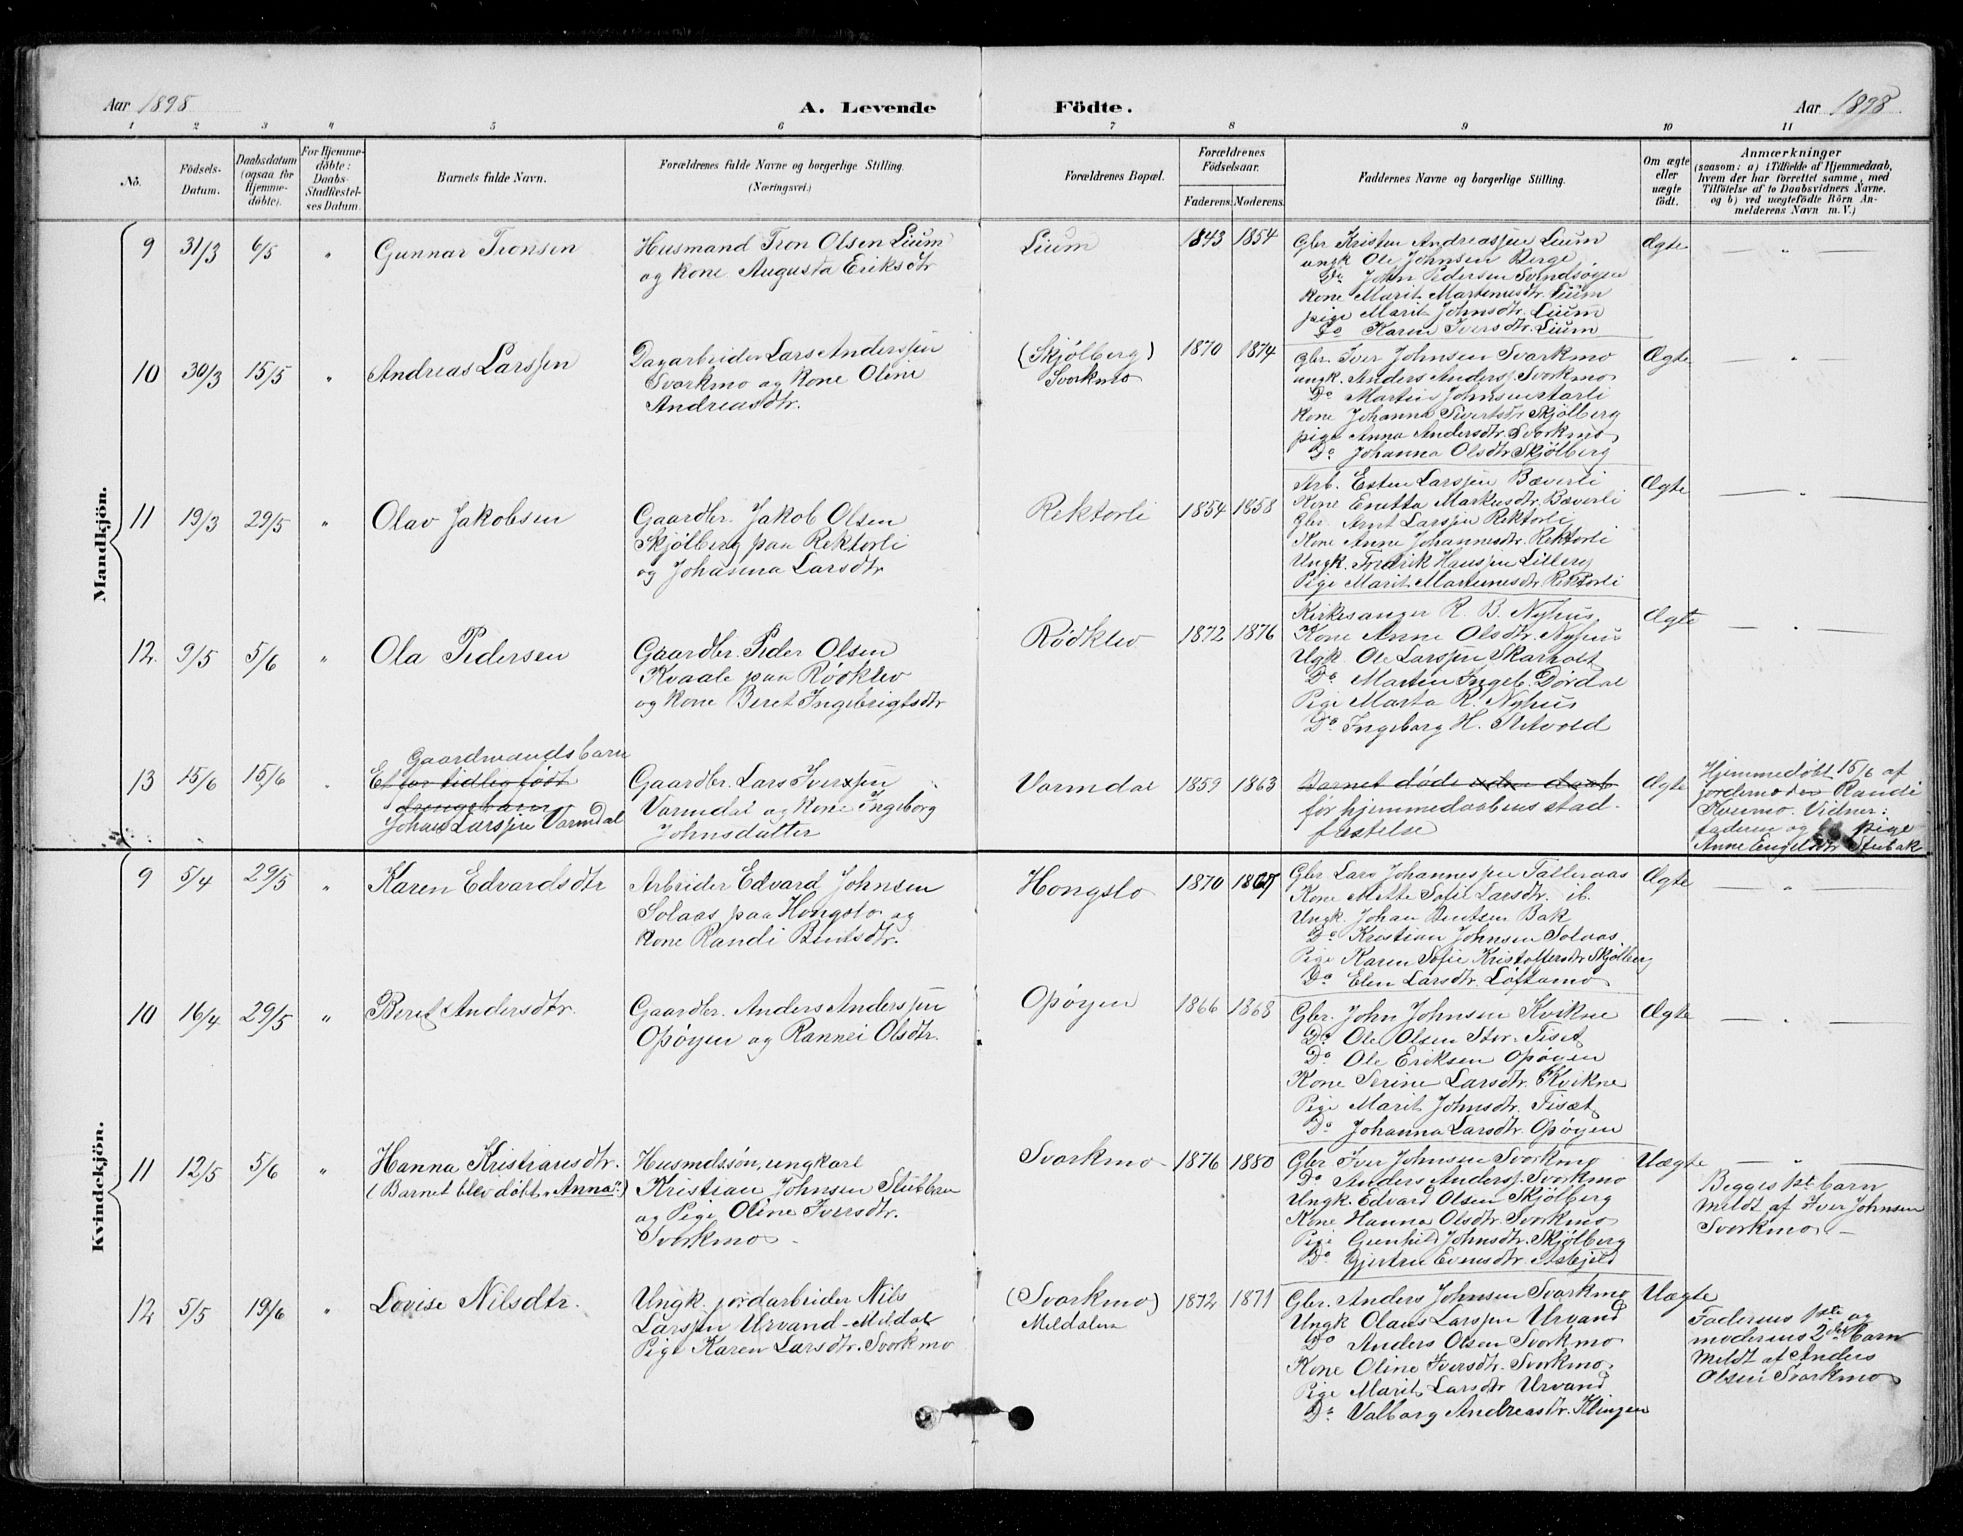 Aar 1898
A. Levende Födte.
Aar 1898
1 2 3 4 5 6 7 8 9 10 11
No.
Födsels-Datum.
Daabsdatum (ogsaa for Hjemmedöbte).
For Hjemmedöbte: Daabs-Stadfæstelses Datum.
Barnets fulde Navn.
Forældrenes fulde Navne og borgerlige Stilling.
(Næringsvei.)
Forældrenes Bopæl.
Forældrenes Födselsaar.
Faderens. Moderens.
Faddernes Navne og borgerlige Stilling.
Om ægte eller uægte födt.
Anmærkninger
(saasom: a) i Tilfælde af Hjemmedaab, hvem der har forrettet samme, med Tilföielse af to Daabsvidners Navne, og b) ved uægtefödte Börn Anmelderens Navn m. V.)
Mandkjön.
9 31/3 6/5 " Gunnar Tronsen
Husmand Tron Olsen Lium
og kone Augusta Eriksdtr
Lium 1843 1854
Gbr Kristen Andreassen Lium
ungk Ole Johnsen Berge
Do John Pedersen Svindsøgen
Kone Marit Martinusdtr. Lium
pige Marit Johnsdtr. Lium
Do Karen Iversdtr. Lium
Ægte — " —
10 30/3 15/5 " Andreas Larssen
Dagarbeider Lars Anderssen
Svorkmo og kone Oline
Andreasdtr.
(Skjølberg)
Svorkmo
1870 1874
Gbr. Iver Johnsen Svorkmo
ungk. Anders Anders. Svorkmo
Do Martin Johnsen Aarli
Kone Johanna Sivertsdr Skjølberg
pige Anna Andersdtr. Svorkmo
Do Johanna Olsdtr Skjølberg
Ægte — " —
11 19/3 29/5 " Olav Jakobsen
Gaardbr. Jakob Olsen
Skjølberg paa Rektorli
og Johanna Larsdtr
Rektorli 1854 1858
Arb. Esten Larssen Bæverli
Kone Enetta Markusdtr. Bæverli
Gbr. Arnt Larssen Rektorli
Kone Anne Johannesdtr. Rektorli
Ungk. Fredrik Hanssen Lillery
Pige Marit Martinusdtr. Rektorli
Ægte — " —
12. 9/5 5/6 " Ola Pedersen
Gaardbr. Peder Olsen
Kvaale paa Rödklev
og kone Beret Ingebrigtsdtr
Rödklev 1872 1876
Kirkesanger R. B. Nyhus
Kone Anne Olsdtr. Nyhus
Ugk. Ole Larssen Skarholt
Do Marten Ingeb. Dordal
Pige Marta R. Nyhus
Do Ingeborg H. Stetvold
Ægte — " —
13 15/6 15/6 "
Gaardmandsbarn
Et for tidlig født
drengebarn
Johan Larssen Varmdal
Gaardbr. Lars Iverssen
Varmdal og Kone Ingeborg
Johnsdatter
Varmdal 1859 1863
Barnet døde uden daab
för hjemmedaabens stad-
fæstelse
Ægte
Hjemmedøbt 15/6 af
jordemoder Randi
Hosmo. Vidner:
faderen og pige
Anne Engelsdtr Stubak
Kvindekjön.
9 5/4 29/5 " Karen Edvardsdtr
Arbeider Edvard Johnsen
Solaas paa Hongslo og
kone Randi Bentsdtr.
Hongslo 1870 1867
Gbr Lars Johannessen Talleraas
Kone Mette Sofie Larsdtr. ib.
Ungk. Johan Bentsen Bak
Do Kristian Johnsen Solaas
Pige Karen Sofie Kristoffersdtr Skjølberg
Do Elen Larsdtr. Loftamo
Ægte — " —
10 16/4 29/5 " Beret Andersdtr.
Gaardbr. Anders Anderssen
Opøyen og Rannei Olsdtr.
Opøyen 1866 1868
Gbr. John Johnsen Kvikne
Do Ole Olsen Stor-Tiset
Do Ole Eriksen Opøyen
Kone Serine Larsdtr. Kvikne
Pige Marit Johnsdtr. Tisæt
Do Johanna Larsdtr. Opøyen
Ægte — " —
11 12/5 5/6 " Hanna Kristiansdtr.
(Barnet blev døbt „Anna")
Husmdssøn, ungkarl
Kristian Johnsen Stubban
og Pige Oline Iversdtr.
Svorkmo.
Svorkmo 1876 1880
Gbr Iver Johnsen Svorkmo
Do Anders Anders. Svorkmo
Ungk. Edvard Olsen Skjølberg
Kone Hanna Olsdtr. Svorkmo
Pige Gunhild Johnsdtr. Skjølberg
Do Gjertru Evensdtr. Asbjeld
Uægte — " —
Begges 1ste barn
Meldt af Iver Johnsen
Svorkmo. —
12 5/5 19/6 Lovise Nilsdtr.
Ungk. jordarbeider Nils
Larssen Urvand-Meldal
Pige Karen Larsdtr. Svorkmo
(Svorkmo)
Meldalen
1872 1871
Gbr. Anders Johnsen Svorkmo
Ungk Olaus Larssen Urvand
Do Anders Olsen Svorkmo
Kone Oline Iversdtr. Svorkmo.
Pige Marit Larsdtr Urvand
Do Valborg Andreasdtr. Klingen
Uægte
Faderens 1ste og
moderens 2det barn
Meldt af Anders
Olsen Svorkmo